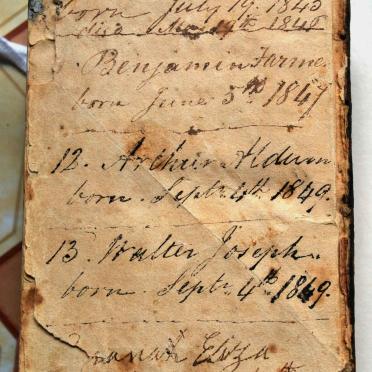 born July 19. 1845
died 19th 1846
Benjamin Farmer
born June 5th 1847
12. Arthur Aldum
born. Septr. 4th 1849.
13. Walter Joseph.
born. Septr. 4th 1849.
Eliza